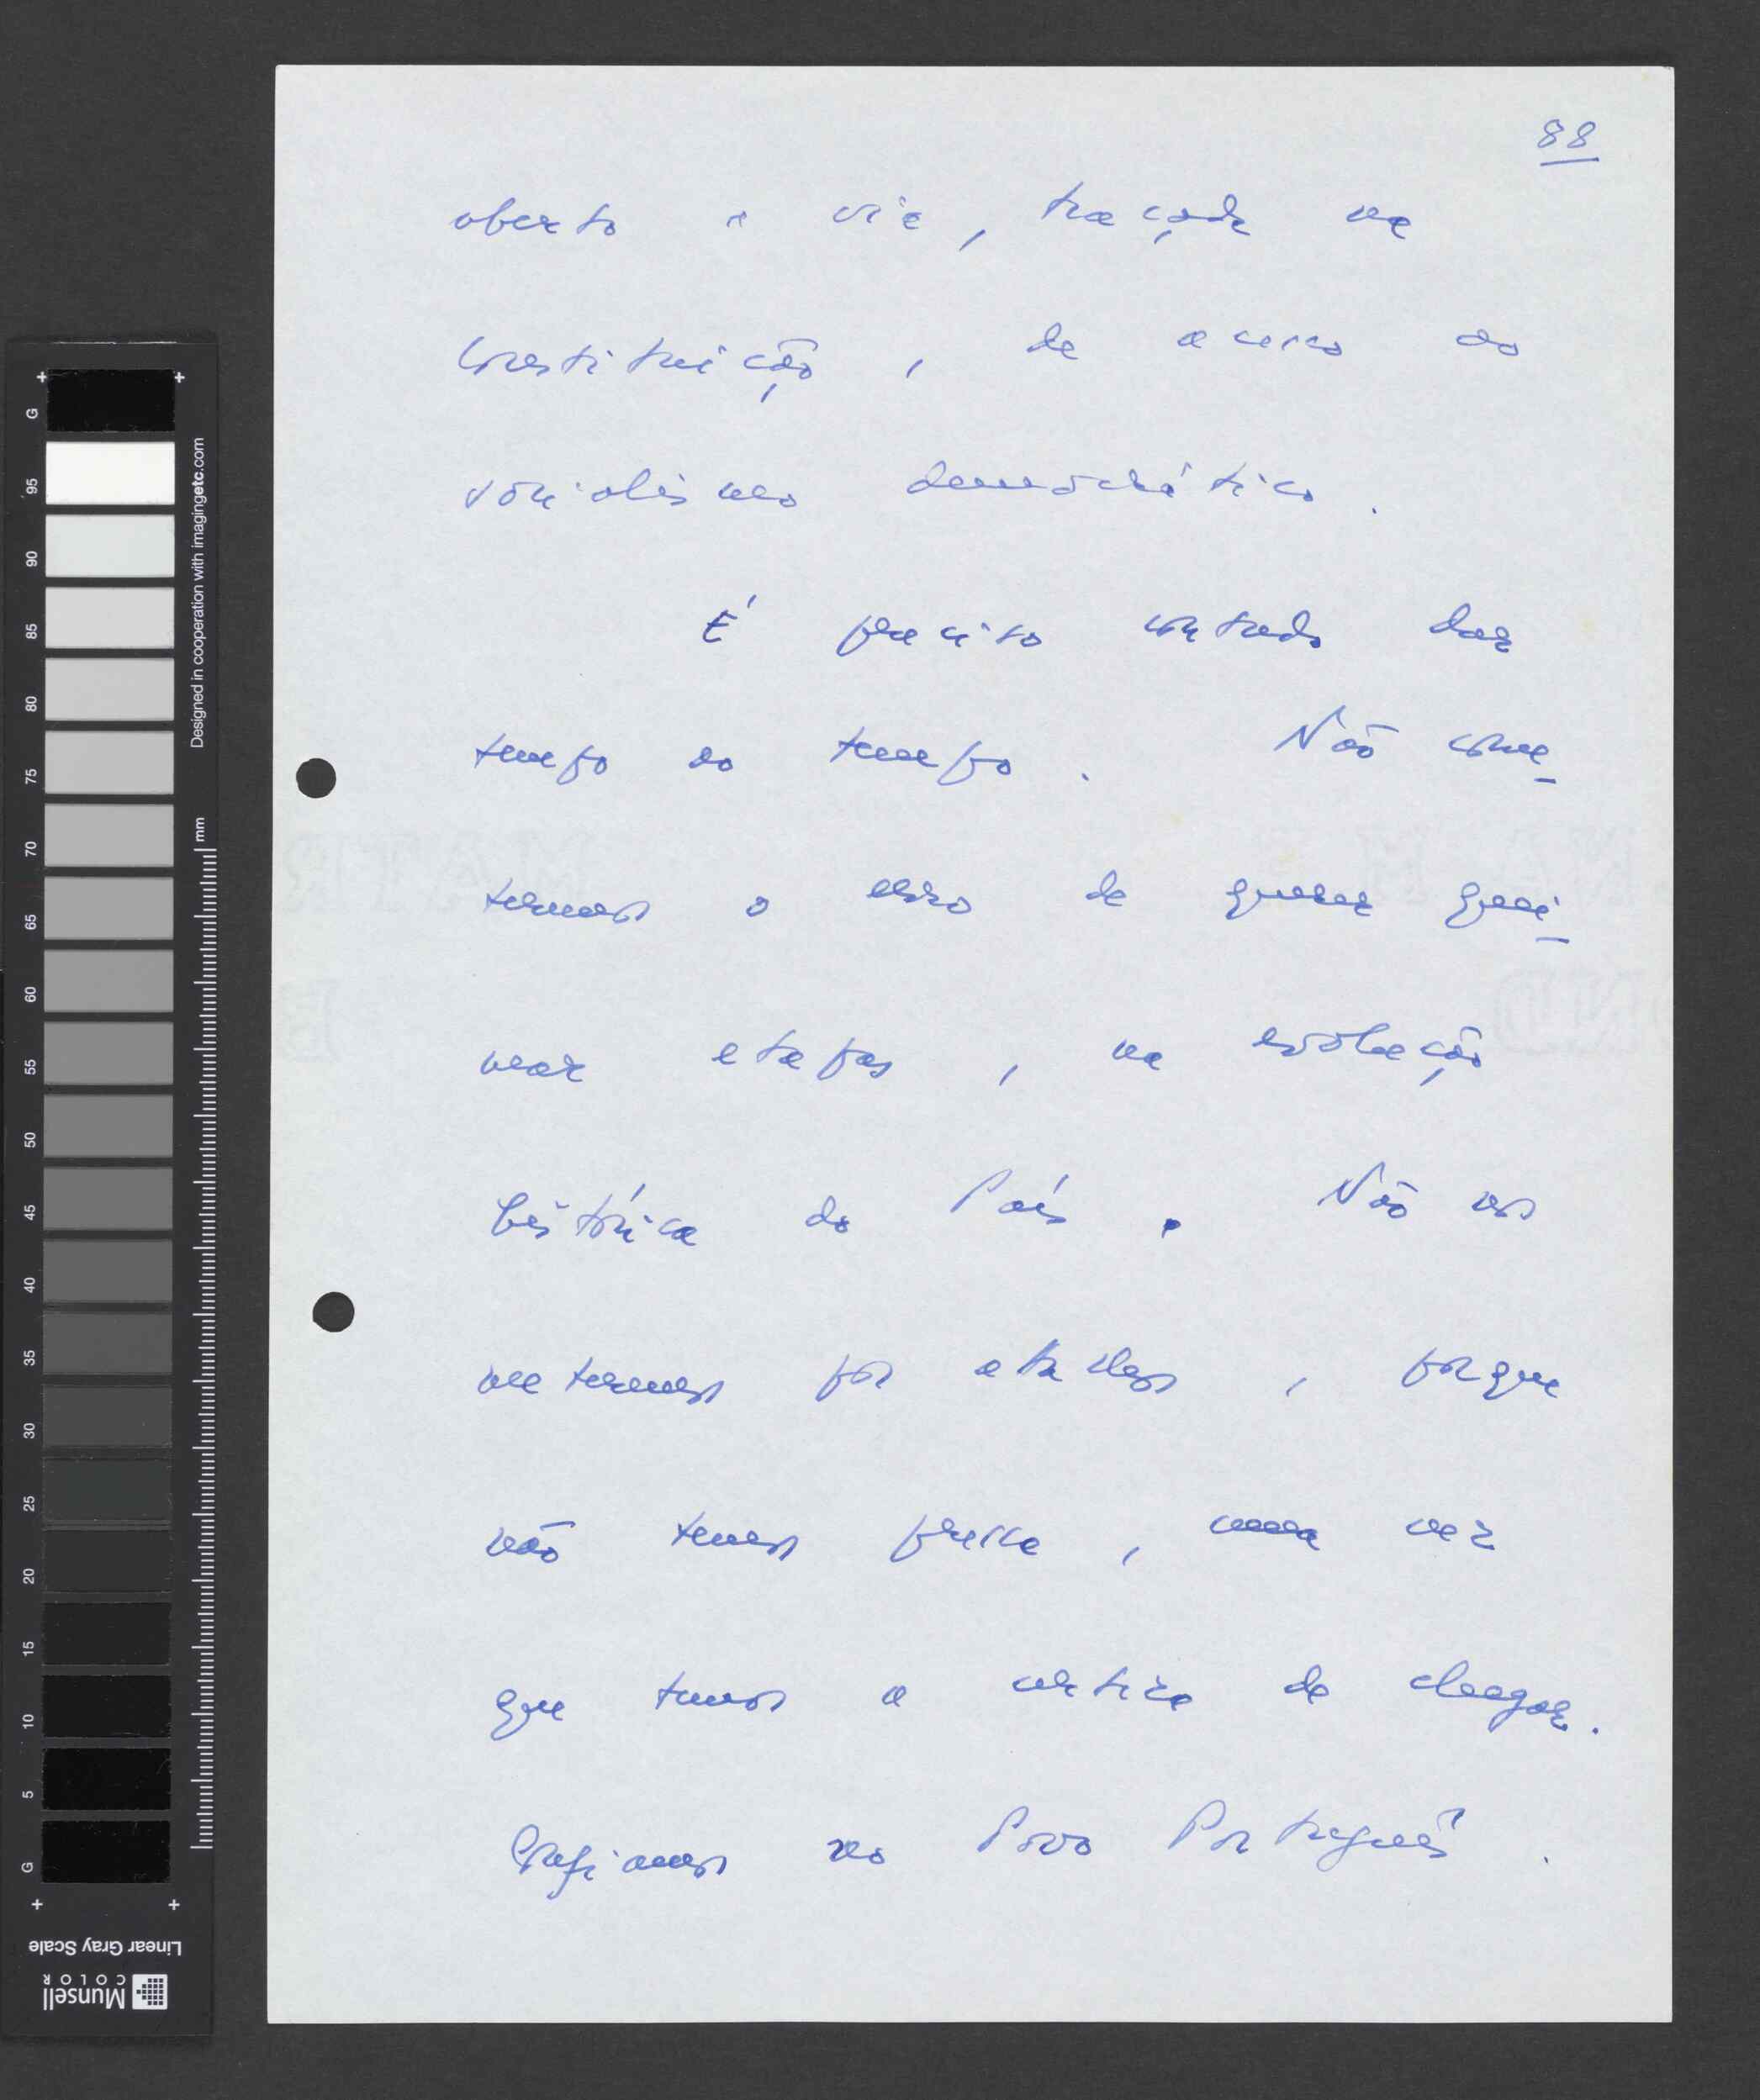 88
aberto a via, traçada na
Constituição, de acesso ao
socialismo democrático.
É preciso contudo dar
tempo ao tempo. Não come-
termos o erro de querer quei-
mar etapas, na evolução
histórica do País. Não nos
metermos por atalhos, porque
não temos pressa, uma vez
que temos a certeza de chegar.
Confiamos no Povo Português.
G 95 90 85 80 75 70 65 60 55 50 45 40 35 30 25 20 15 10 5 G
Designed in cooperation with imagingetc.com
mm
Linear Gray Scale
Munsell
COLOR